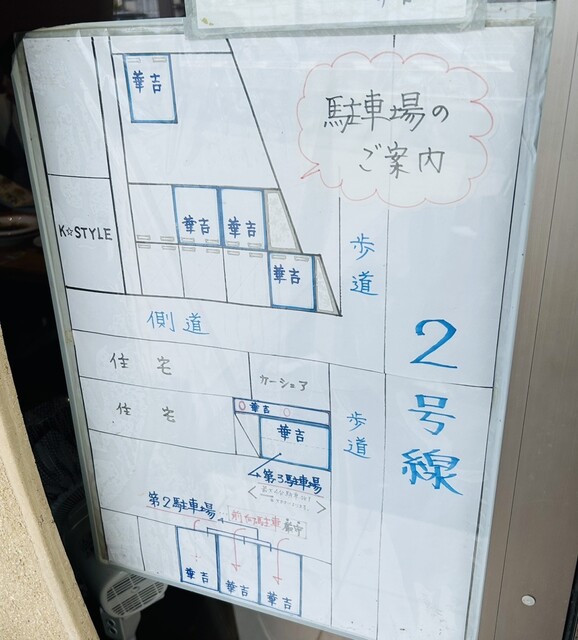 駐車場の
ご案内
華吉
K☆STYLE
華吉
華吉
華吉
歩道
側道
2号線
住宅
カーシェア
住宅
華吉
華吉
歩道
第3駐車場
第2駐車場
華吉
華吉
華吉